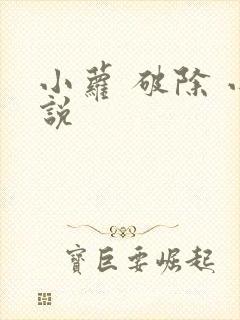 小蘿 破除 小
說
寶巨要崛起